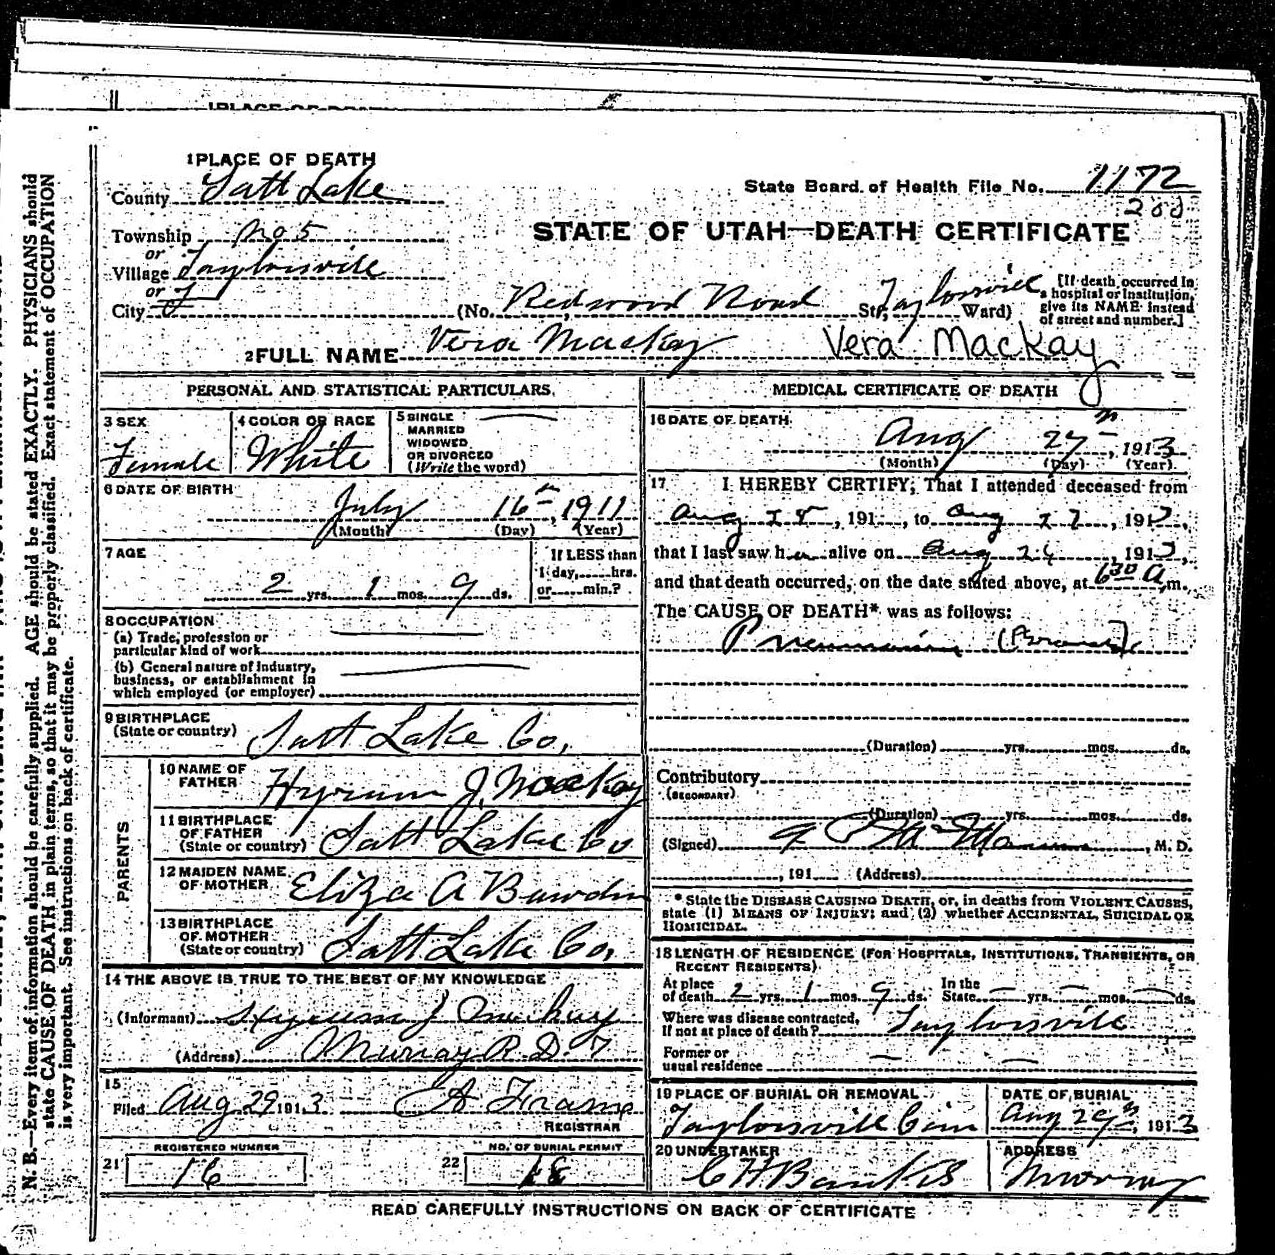 1 PLACE OF DEATH
County Salt Lake
State Board of Health File No. 1172
Township No 5
STATE OF UTAH—DEATH CERTIFICATE
or
Village Taylorsville
or
City
(No. Redwood Road St; Taylorsville Ward)
[If death occurred in a hospital or institution, give its NAME instead of street and number.]
2 FULL NAME Vera Mackay Vera Mackay
PERSONAL AND STATISTICAL PARTICULARS.
3 SEX
Female
4 COLOR OR RACE
White
5 SINGLE
MARRIED
WIDOWED
OR DIVORCED
(Write the word)
6 DATE OF BIRTH
July 16th, 1911
(Month) (Day) (Year)
7 AGE
2 yrs. 1 mos. 9 ds.
If LESS than
1 day, hrs.
or min.?
8 OCCUPATION
(a) Trade, profession or
particular kind of work
(b) General nature of industry,
business, or establishment in
which employed (or employer)
9 BIRTHPLACE
(State or country) Salt Lake Co.
PARENTS
10 NAME OF
FATHER Hyrum J. Mackay
11 BIRTHPLACE
OF FATHER
(State or country) Salt Lake Co
12 MAIDEN NAME
OF MOTHER Eliza A Bawden
13 BIRTHPLACE
OF MOTHER
(State or country) Salt Lake Co,
14 THE ABOVE IS TRUE TO THE BEST OF MY KNOWLEDGE
(Informant) Hyrum J Mackay
(Address) Murray R. D. 7
15
Filed Aug 29 1913 A Frame
REGISTRAR
REGISTERED NUMBER
21 16
NO. OF BURIAL PERMIT
22 18
MEDICAL CERTIFICATE OF DEATH
16 DATE OF DEATH
Aug 27th, 1913
(Month) (Day) (Year)
17 I HEREBY CERTIFY, That I attended deceased from
Aug 25, 191 , to Aug 27, 1913,
that I last saw her alive on Aug 26, 1913,
and that death occurred, on the date stated above, at 6 30 A m.
The CAUSE OF DEATH* was as follows:
Pneumonia
(Duration) yrs. mos. ds.
Contributory
(SECONDARY)
(Duration) yrs. mos. ds.
(Signed) , M. D.
, 191 (Address)
* State the DISEASE CAUSING DEATH, or, in deaths from VIOLENT CAUSES,
state (1) MEANS OF INJURY; and (2) whether ACCIDENTAL, SUICIDAL OR
HOMICIDAL.
18 LENGTH OF RESIDENCE (FOR HOSPITALS, INSTITUTIONS, TRANSIENTS, OR
RECENT RESIDENTS)
At place
of death 2 yrs. 1 mos. 9 ds. In the
State — yrs. — mos. — ds.
Where was disease contracted,
If not at place of death? Taylorsville
Former or
usual residence
19 PLACE OF BURIAL OR REMOVAL
Taylorsville Cem
DATE OF BURIAL
Aug 29th, 1913
20 UNDERTAKER
C H Banks
ADDRESS
Murray
READ CAREFULLY INSTRUCTIONS ON BACK OF CERTIFICATE
N. B.—Every item of information should be carefully supplied. AGE should be stated EXACTLY. PHYSICIANS should
state CAUSE OF DEATH in plain terms, so that it may be properly classified. Exact statement of OCCUPATION
is very important. See instructions on back of certificate.